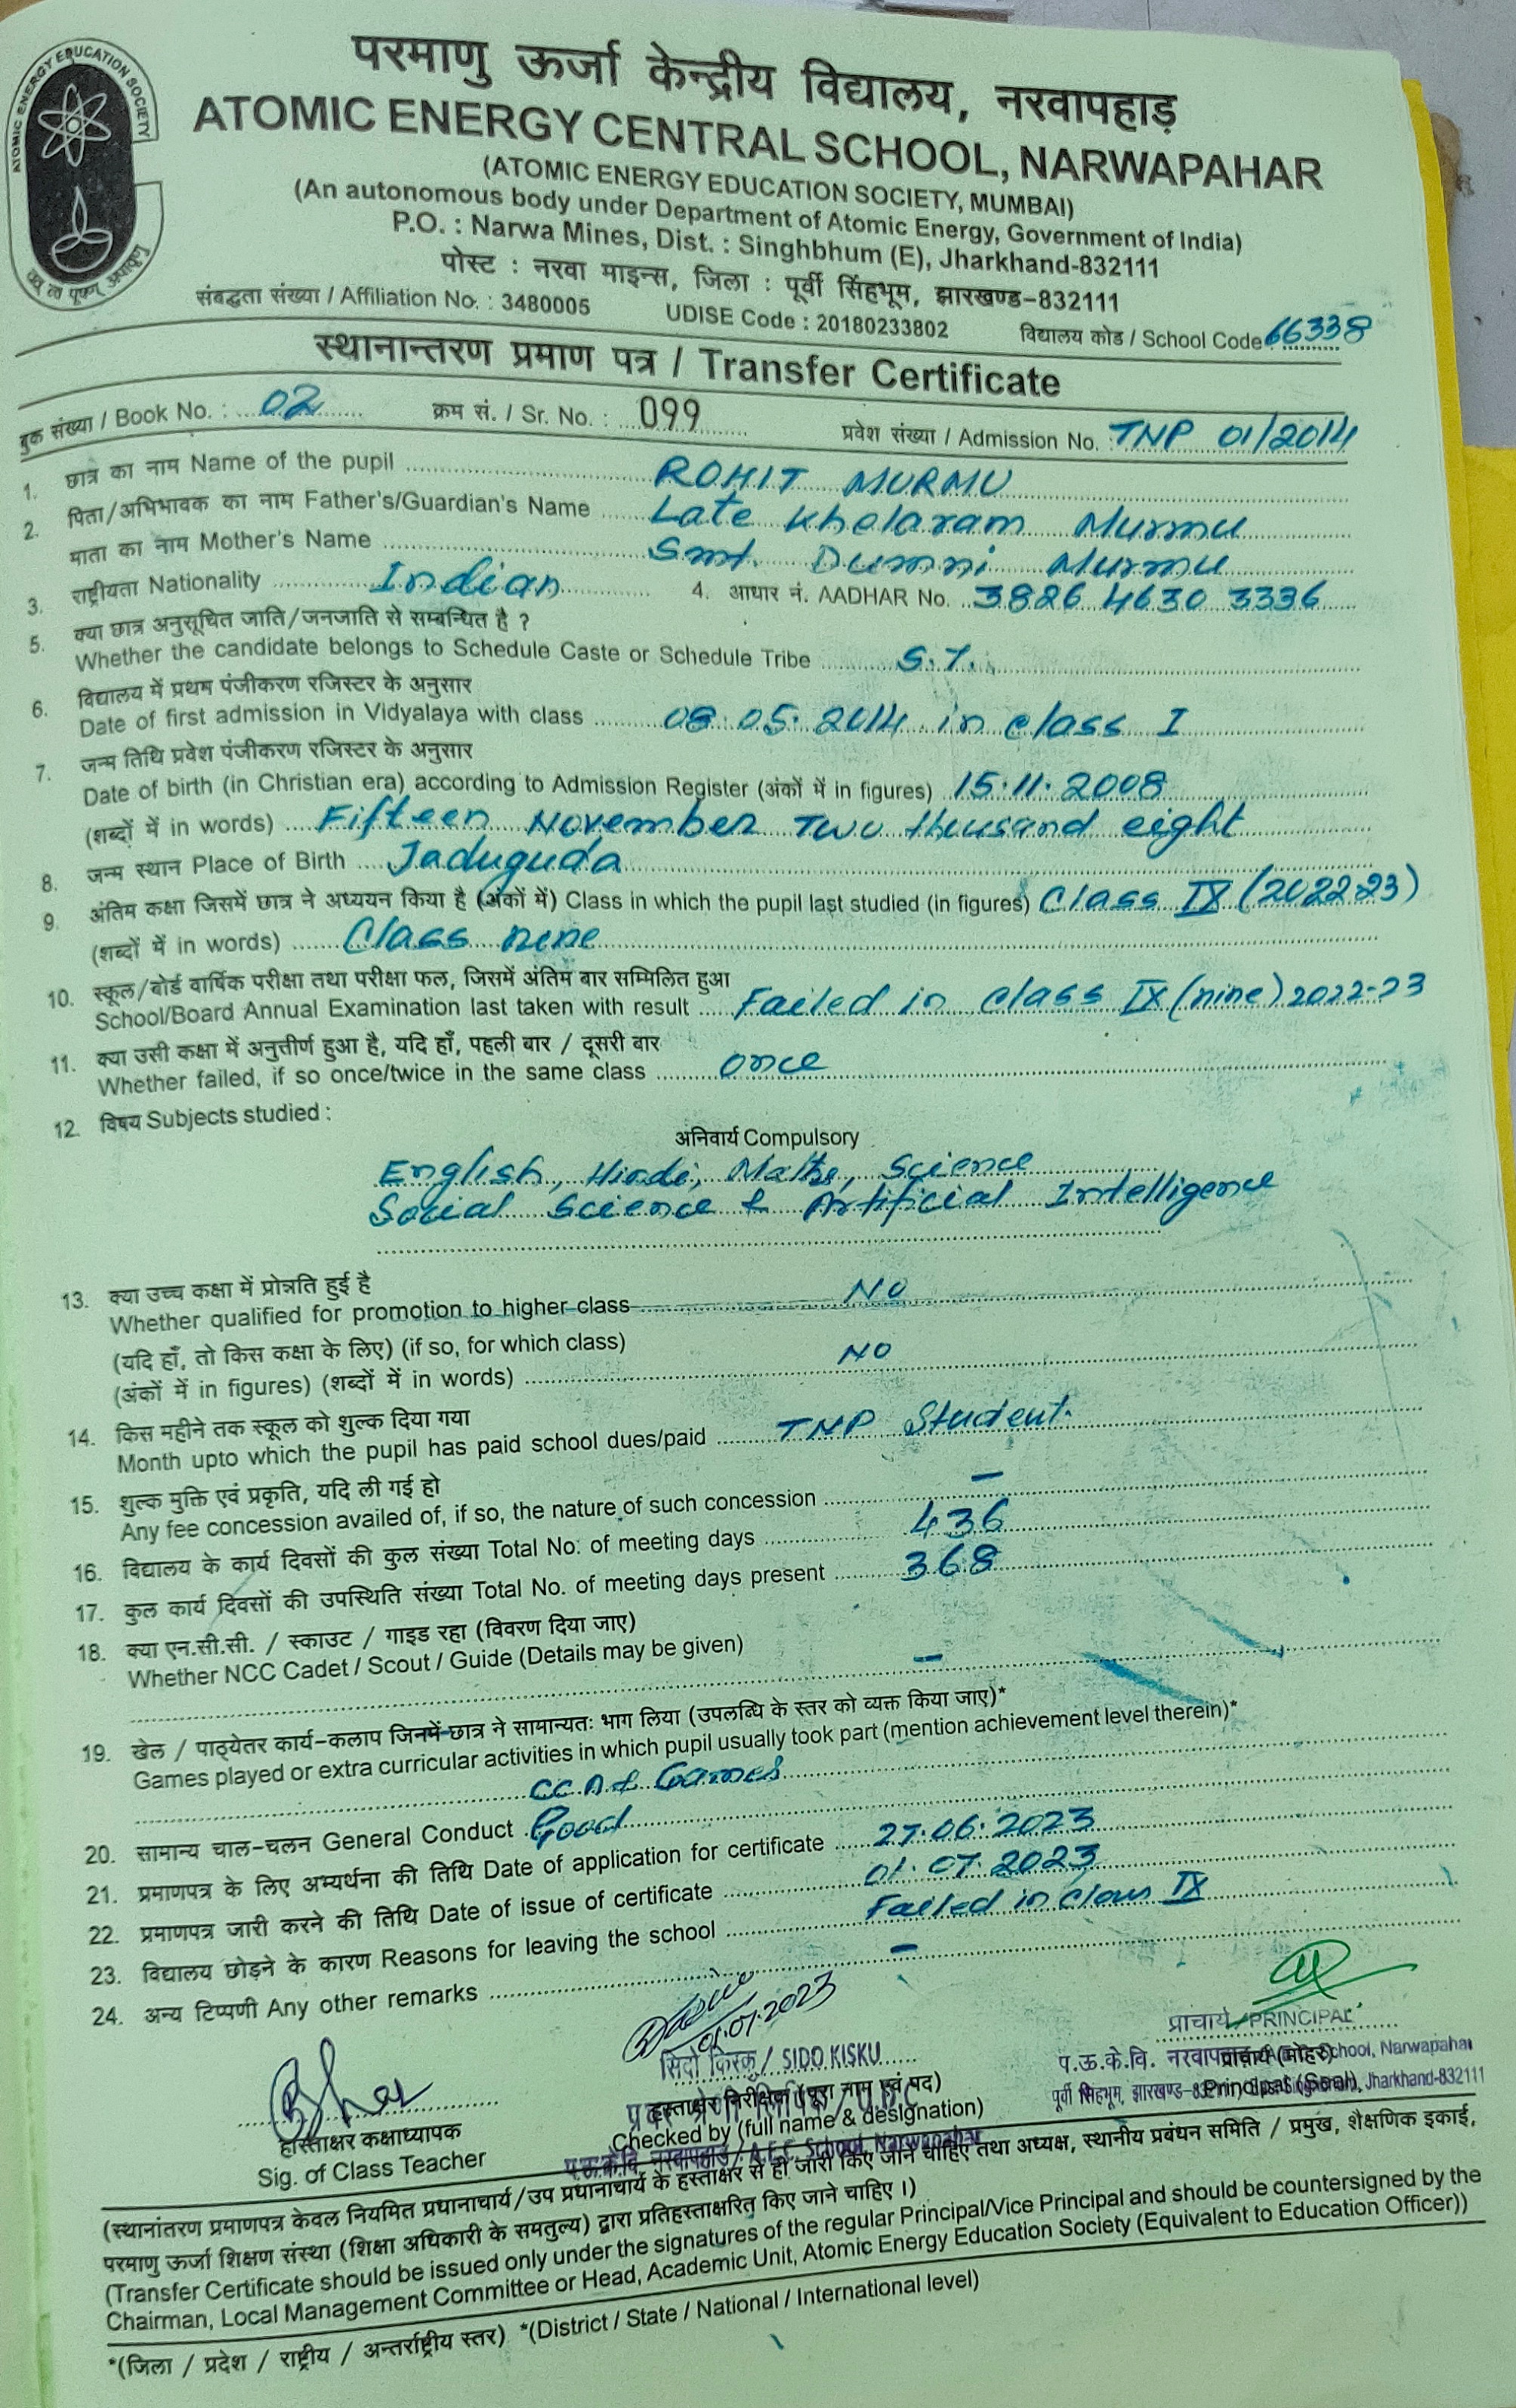 ATOMIC ENERGY EDUCATION SOCIETY
परमाणु ऊर्जा केन्द्रीय विद्यालय, नरवापहाड़
ATOMIC ENERGY CENTRAL SCHOOL, NARWAPAHAR
(ATOMIC ENERGY EDUCATION SOCIETY, MUMBAI)
(An autonomous body under Department of Atomic Energy, Government of India)
P.O. : Narwa Mines, Dist. : Singhbhum (E), Jharkhand-832111
पोस्ट : नरवा माइन्स, जिला : पूर्वी सिंहभूम, झारखण्ड-832111
संबद्धता संख्या / Affiliation No. : 3480005 UDISE Code : 20180233802 विद्यालय कोड / School Code 66338
स्थानान्तरण प्रमाण पत्र / Transfer Certificate
बुक संख्या / Book No. : 02 क्रम सं. / Sr. No. : 099 प्रवेश संख्या / Admission No. TNP 01/2014
1. छात्र का नाम Name of the pupil ROHIT MURMU
2. पिता/अभिभावक का नाम Father's/Guardian's Name Late Khelaram Murmu
माता का नाम Mother's Name Smt. Dumni Murmu
3. राष्ट्रीयता Nationality Indian 4. आधार नं. AADHAR No. 3826 4630 3336
5. क्या छात्र अनुसूचित जाति/जनजाति से सम्बन्धित है ?
Whether the candidate belongs to Schedule Caste or Schedule Tribe S.T.
6. विद्यालय में प्रथम पंजीकरण रजिस्टर के अनुसार
Date of first admission in Vidyalaya with class 08.05.2014 in class I
7. जन्म तिथि प्रवेश पंजीकरण रजिस्टर के अनुसार
Date of birth (in Christian era) according to Admission Register (अंकों में in figures) 15.11.2008
(शब्दों में in words) Fifteen November Two thousand eight
8. जन्म स्थान Place of Birth Jaduguda
9. अंतिम कक्षा जिसमें छात्र ने अध्ययन किया है (अंकों में) Class in which the pupil last studied (in figures) Class IX (2022-23)
(शब्दों में in words) Class nine
10. स्कूल/बोर्ड वार्षिक परीक्षा तथा परीक्षा फल, जिसमें अंतिम बार सम्मिलित हुआ
School/Board Annual Examination last taken with result Failed in class IX (nine) 2022-23
11. क्या उसी कक्षा में अनुत्तीर्ण हुआ है, यदि हाँ, पहली बार / दूसरी बार
Whether failed, if so once/twice in the same class once
12. विषय Subjects studied :
अनिवार्य Compulsory
English, Hindi, Maths, Science
Social Science & Artificial Intelligence
13. क्या उच्च कक्षा में प्रोन्नति हुई है
Whether qualified for promotion to higher class NO
(यदि हाँ, तो किस कक्षा के लिए) (if so, for which class)
(अंकों में in figures) (शब्दों में in words) NO
14. किस महीने तक स्कूल को शुल्क दिया गया
Month upto which the pupil has paid school dues/paid TNP Student.
15. शुल्क मुक्ति एवं प्रकृति, यदि ली गई हो
Any fee concession availed of, if so, the nature of such concession –
16. विद्यालय के कार्य दिवसों की कुल संख्या Total No. of meeting days 436
17. कुल कार्य दिवसों की उपस्थिति संख्या Total No. of meeting days present 368
18. क्या एन.सी.सी. / स्काउट / गाइड रहा (विवरण दिया जाए)
Whether NCC Cadet / Scout / Guide (Details may be given) –
19. खेल / पाठ्येतर कार्य-कलाप जिनमें छात्र ने सामान्यतः भाग लिया (उपलब्धि के स्तर को व्यक्त किया जाए)*
Games played or extra curricular activities in which pupil usually took part (mention achievement level therein)*
CCA & Games
20. सामान्य चाल-चलन General Conduct Good
21. प्रमाणपत्र के लिए अभ्यर्थना की तिथि Date of application for certificate 27.06.2023
22. प्रमाणपत्र जारी करने की तिथि Date of issue of certificate 01.07.2023
23. विद्यालय छोड़ने के कारण Reasons for leaving the school Failed in Class IX
24. अन्य टिप्पणी Any other remarks –
01.07.2023
सिदो किस्कू / SIDO KISKU
प्राचार्य / PRINCIPAL
प.ऊ.के.वि. नरवापहाड़ School, Narwapahar
प्राचार्य (मोहर)
पूर्वी सिंहभूम, झारखण्ड- Jharkhand-832111
Principal (Seal)
हस्ताक्षर कक्षाध्यापक
Sig. of Class Teacher
हस्ताक्षर निरीक्षक (पूरा नाम एवं पद)
Checked by (full name & designation)
प.ऊ.के.वि. नरवापहाड़ / A.E.C. School, Narwapahar
(स्थानांतरण प्रमाणपत्र केवल नियमित प्रधानाचार्य/उप प्रधानाचार्य के हस्ताक्षर से ही जारी किए जाने चाहिए तथा अध्यक्ष, स्थानीय प्रबंधन समिति / प्रमुख, शैक्षणिक इकाई,
परमाणु ऊर्जा शिक्षण संस्था (शिक्षा अधिकारी के समतुल्य) द्वारा प्रतिहस्ताक्षरित किए जाने चाहिए ।)
(Transfer Certificate should be issued only under the signatures of the regular Principal/Vice Principal and should be countersigned by the
Chairman, Local Management Committee or Head, Academic Unit, Atomic Energy Education Society (Equivalent to Education Officer))
*(जिला / प्रदेश / राष्ट्रीय / अन्तर्राष्ट्रीय स्तर) *(District / State / National / International level)